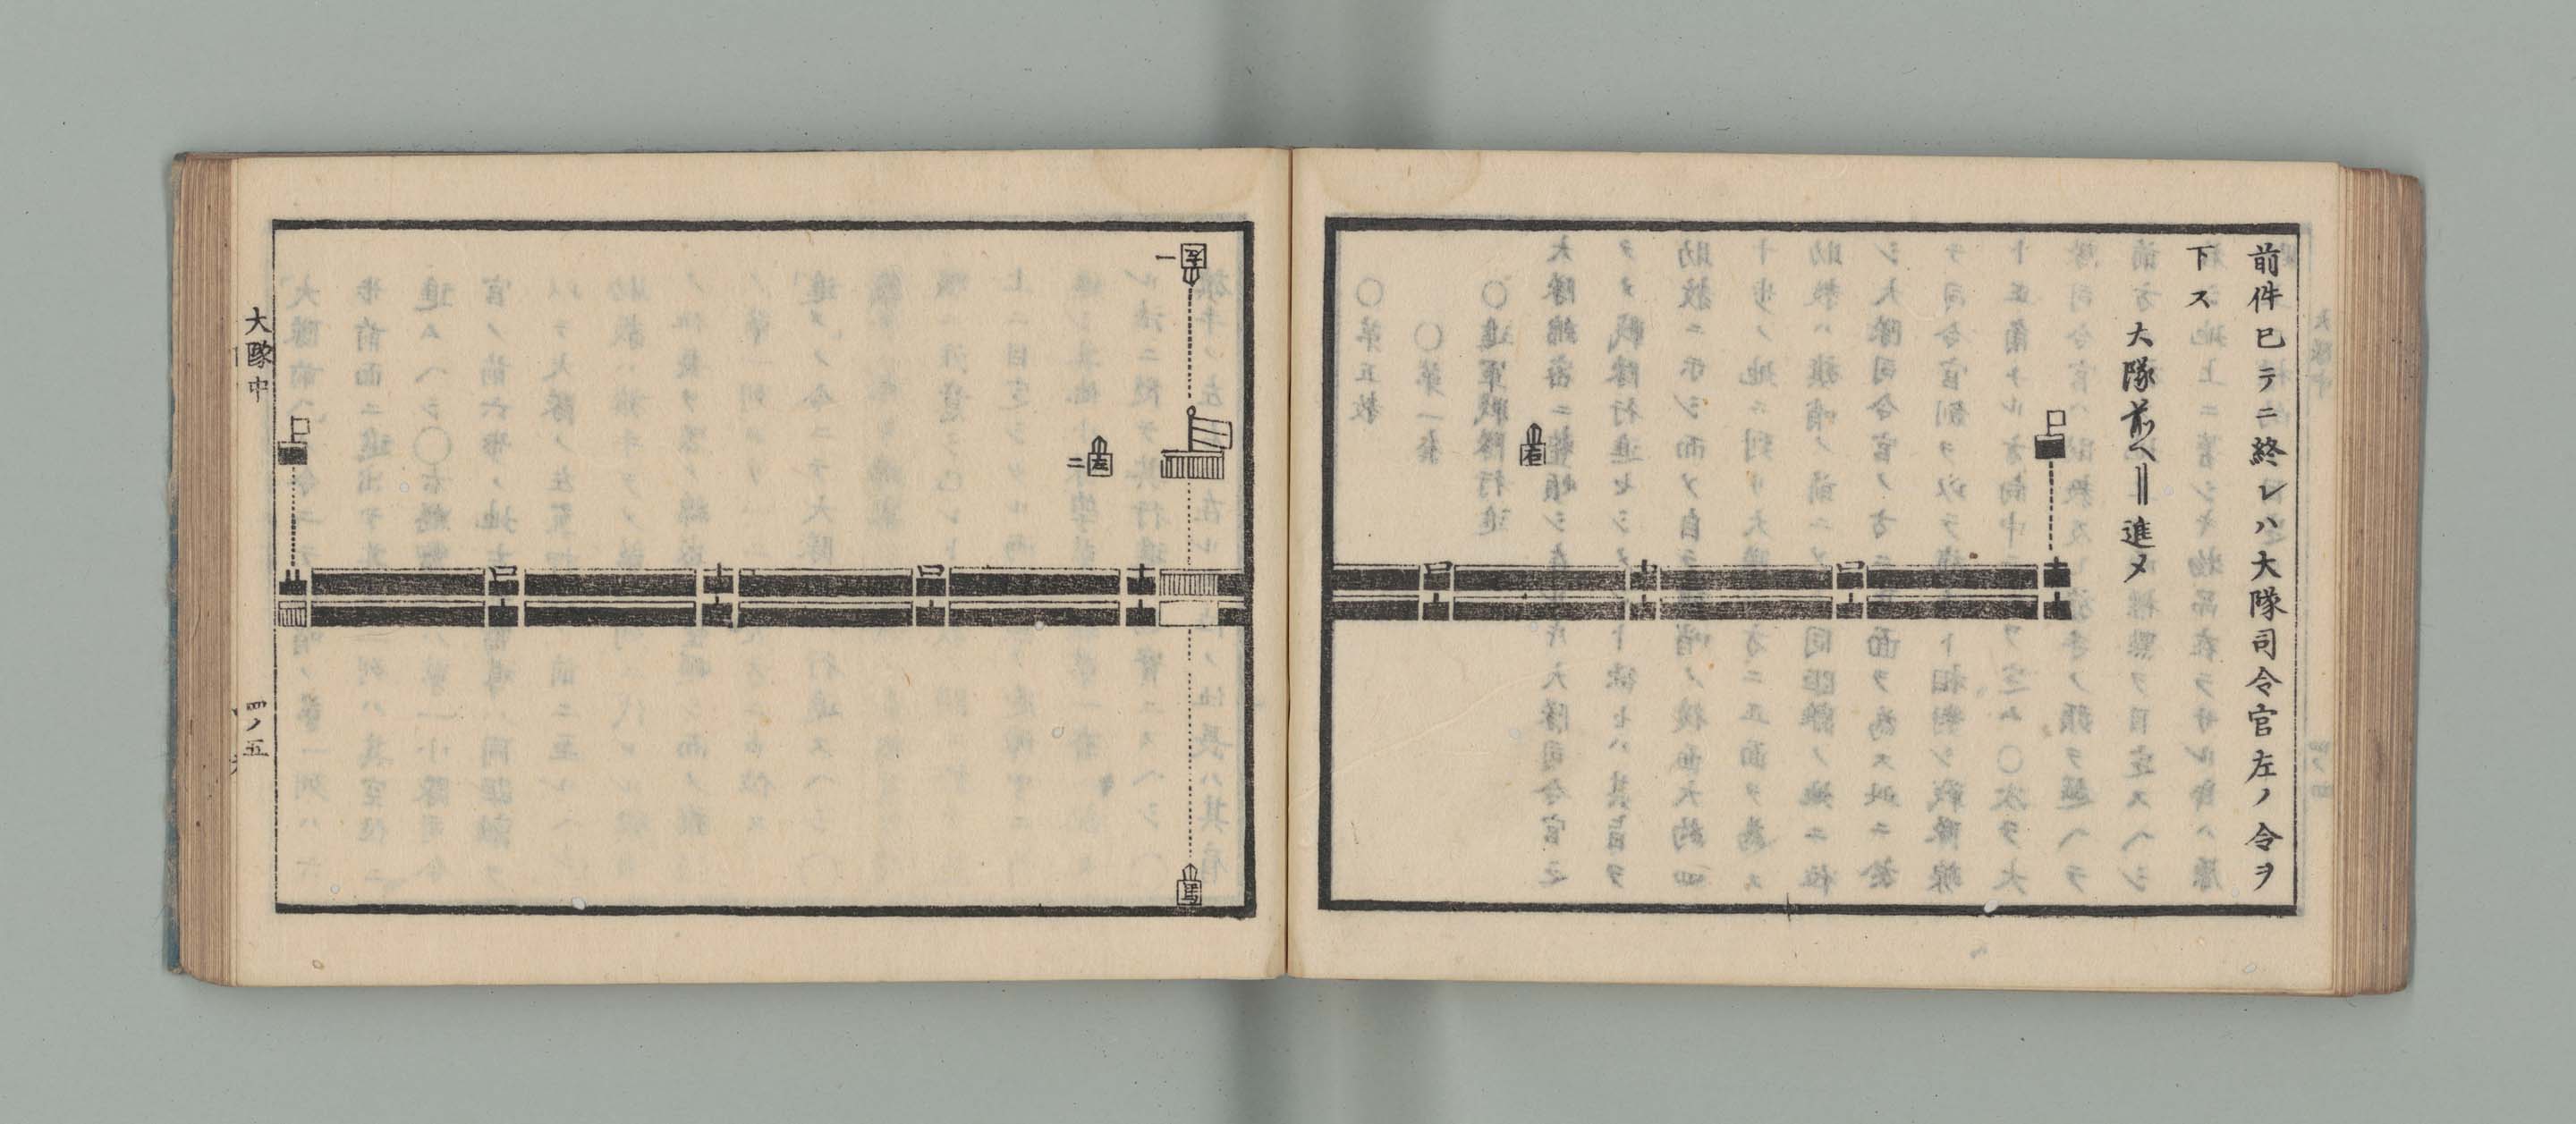 前件已テニ終レハ大隊司令官左ノ令ヲ
下ス
大隊前へ‖進メ
右
左
一
左
二
馬
大隊中
四ノ五